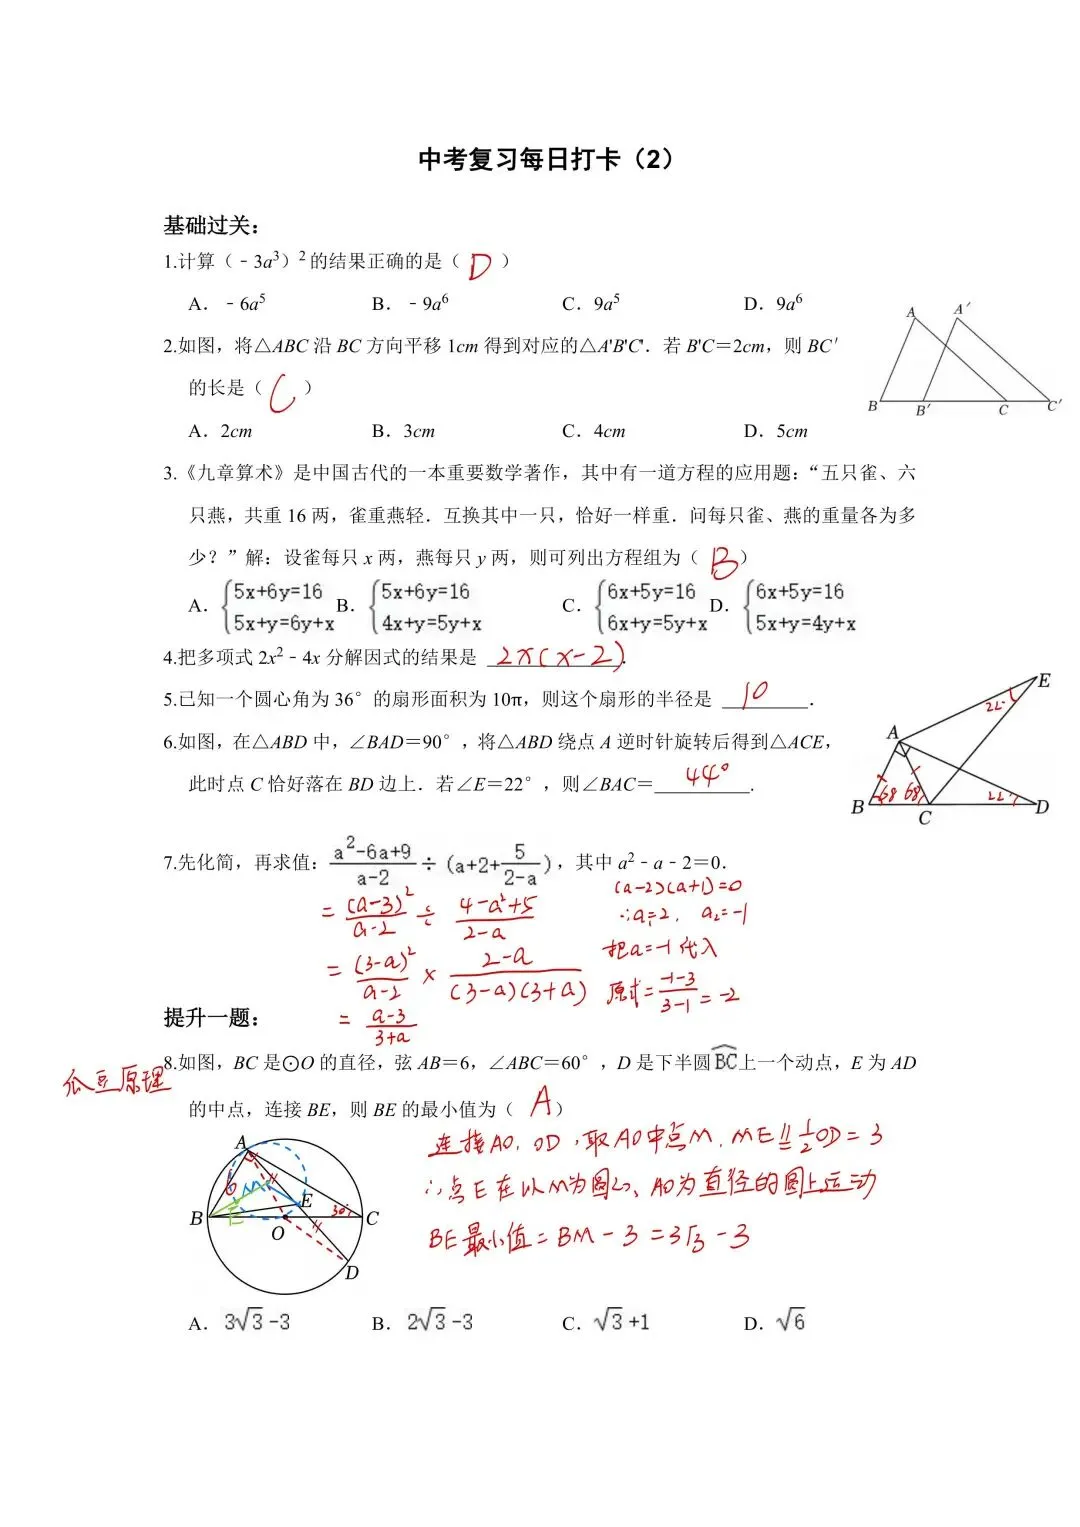 中考复习每日打卡（2）
基础过关：
1.计算（﹣3a³）²的结果正确的是（ D ）
A．﹣6a⁵ B．﹣9a⁶ C．9a⁵ D．9a⁶
2.如图，将△ABC 沿 BC 方向平移 1cm 得到对应的△A'B'C'．若 B'C＝2cm，则 BC′
的长是（ C ）
A．2cm B．3cm C．4cm D．5cm
A A′
B B′ C C′
3.《九章算术》是中国古代的一本重要数学著作，其中有一道方程的应用题：“五只雀、六
只燕，共重 16 两，雀重燕轻．互换其中一只，恰好一样重．问每只雀、燕的重量各为多
少？”解：设雀每只 x 两，燕每只 y 两，则可列出方程组为（ B ）
A．{5x+6y=16 B．{5x+6y=16 C．{6x+5y=16 D．{6x+5y=16
5x+y=6y+x 4x+y=5y+x 6x+y=5y+x 5x+y=4y+x
4.把多项式 2x²﹣4x 分解因式的结果是 2x(x-2)．
5.已知一个圆心角为 36°的扇形面积为 10π，则这个扇形的半径是 10．
6.如图，在△ABD 中，∠BAD＝90°，将△ABD 绕点 A 逆时针旋转后得到△ACE，
此时点 C 恰好落在 BD 边上．若∠E＝22°，则∠BAC＝ 44°．
E
22
A
B 68 68 22 D
C
7.先化简，再求值：(a²-6a+9)/(a-2) ÷ (a+2+5/(2-a))，其中 a²﹣a﹣2＝0．
= (a-3)²/(a-2) ÷ (4-a²+5)/(2-a)
= (3-a)²/(a-2) × (2-a)/((3-a)(3+a))
= (a-3)/(3+a)
(a-2)(a+1)=0
∴a₁=2, a₂=-1
把a=-1代入
原式=(-1-3)/(3-1)=-2
提升一题：
瓜豆原理
8.如图，BC 是⊙O 的直径，弦 AB＝6，∠ABC＝60°，D 是下半圆BC上一个动点，E 为 AD
的中点，连接 BE，则 BE 的最小值为（ A ）
A
6 M
B E E 30° C
O
D
连接AO，OD，取AO中点M，ME∥=½OD=3
∴点E在以M为圆心、AO为直径的圆上运动
BE最小值=BM-3=3√3-3
A．3√3-3 B．2√3-3 C．√3+1 D．√6